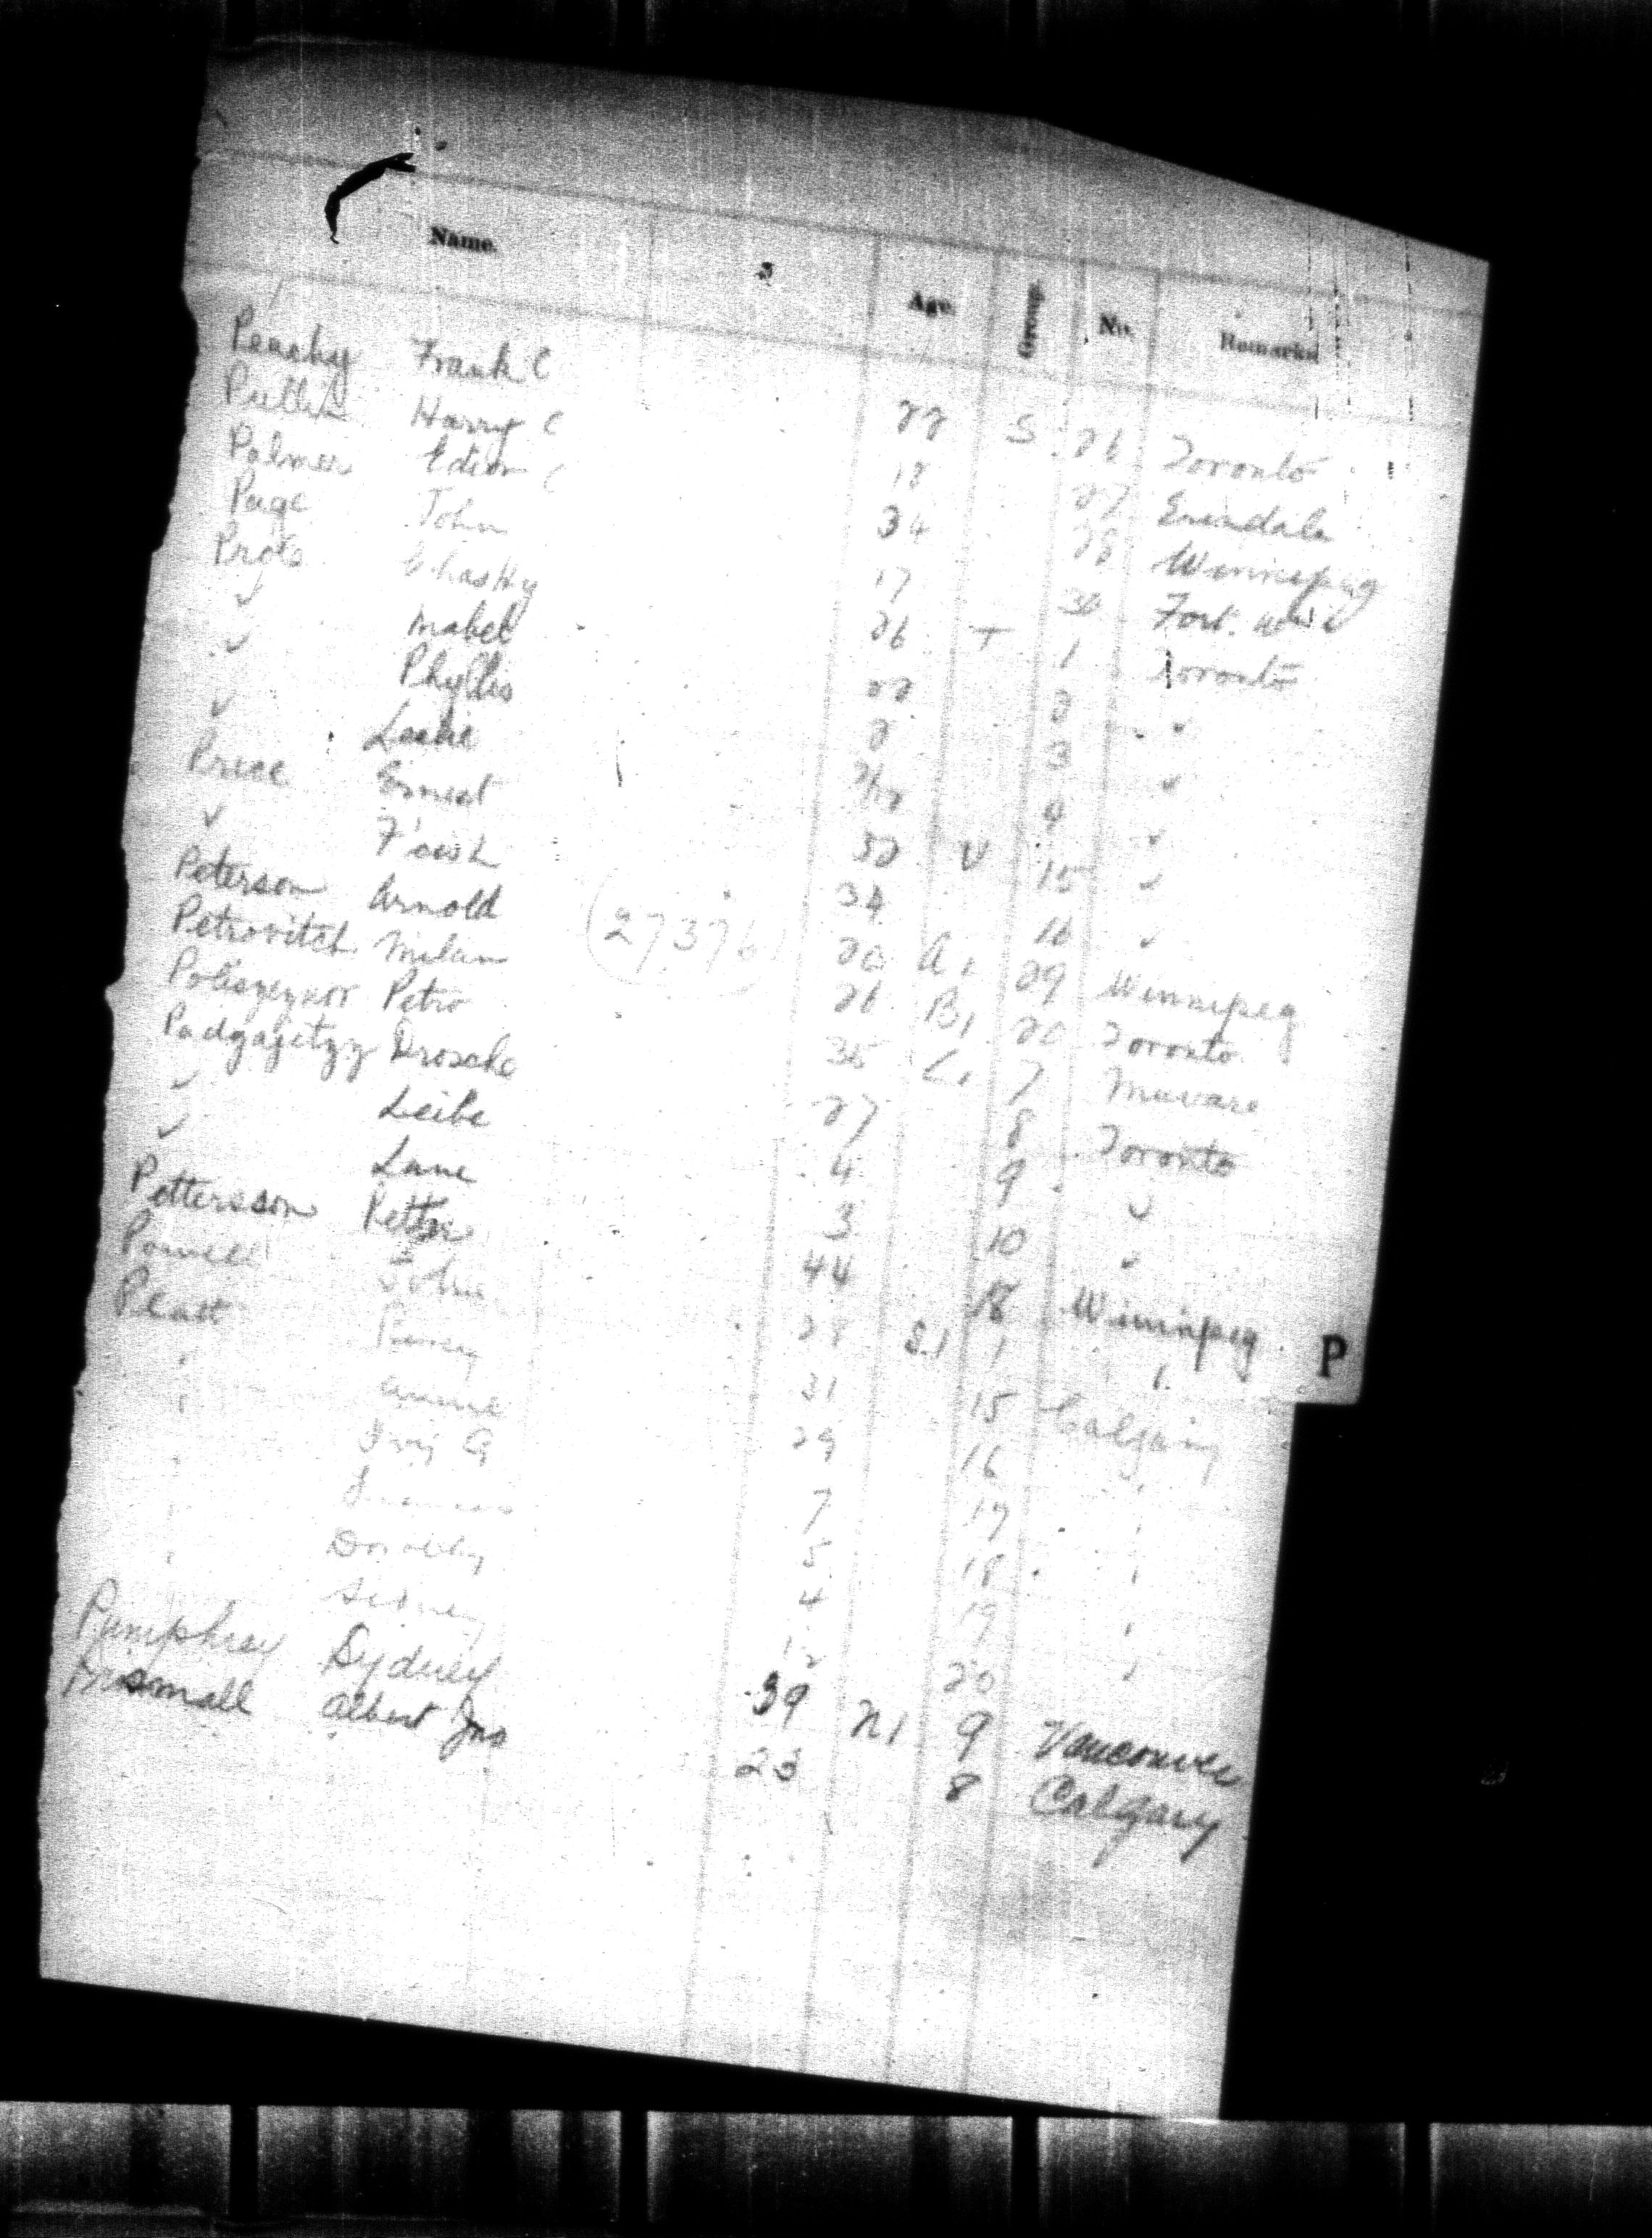 Name. Age. Group. No. Remarks
Peachy Frank C 22 S 26 Toronto
Pullin Harry C 18 27 Erindale
Palmer C 34 28 Winnipeg
Page John 17 30 Fort
Chas Hy 26 T 1 Toronto
✓ Mabel 22 2 "
✓ Phyllis 2 3 ✓
✓ Leslie 4 ✓
Price Ernest 32 V 15 ✓
✓ 34 16 ✓
Peterson Arnold 20 A1 29 Winnipeg
Petrovitch Milan (27376) 26 B1 20 Toronto
Petro 35 C1 7
Padgajetzy 27 8 Toronto
✓ Leibe 4 9 ✓
✓ Lane 3 10 ✓
Pettersson Petter 44 18 Winnipeg
Powell John 28 S.1 1 "
Percy 31 15 Calgary
" Annie 29 16 "
" Ivy G 7 17 "
" 5 18 "
" Dorothy 4 19 "
" Sidney 20 "
Pumphrey Sydney 39 N1 9 Vancouver
Prismall Albert Jno 23 8 Calgary
P